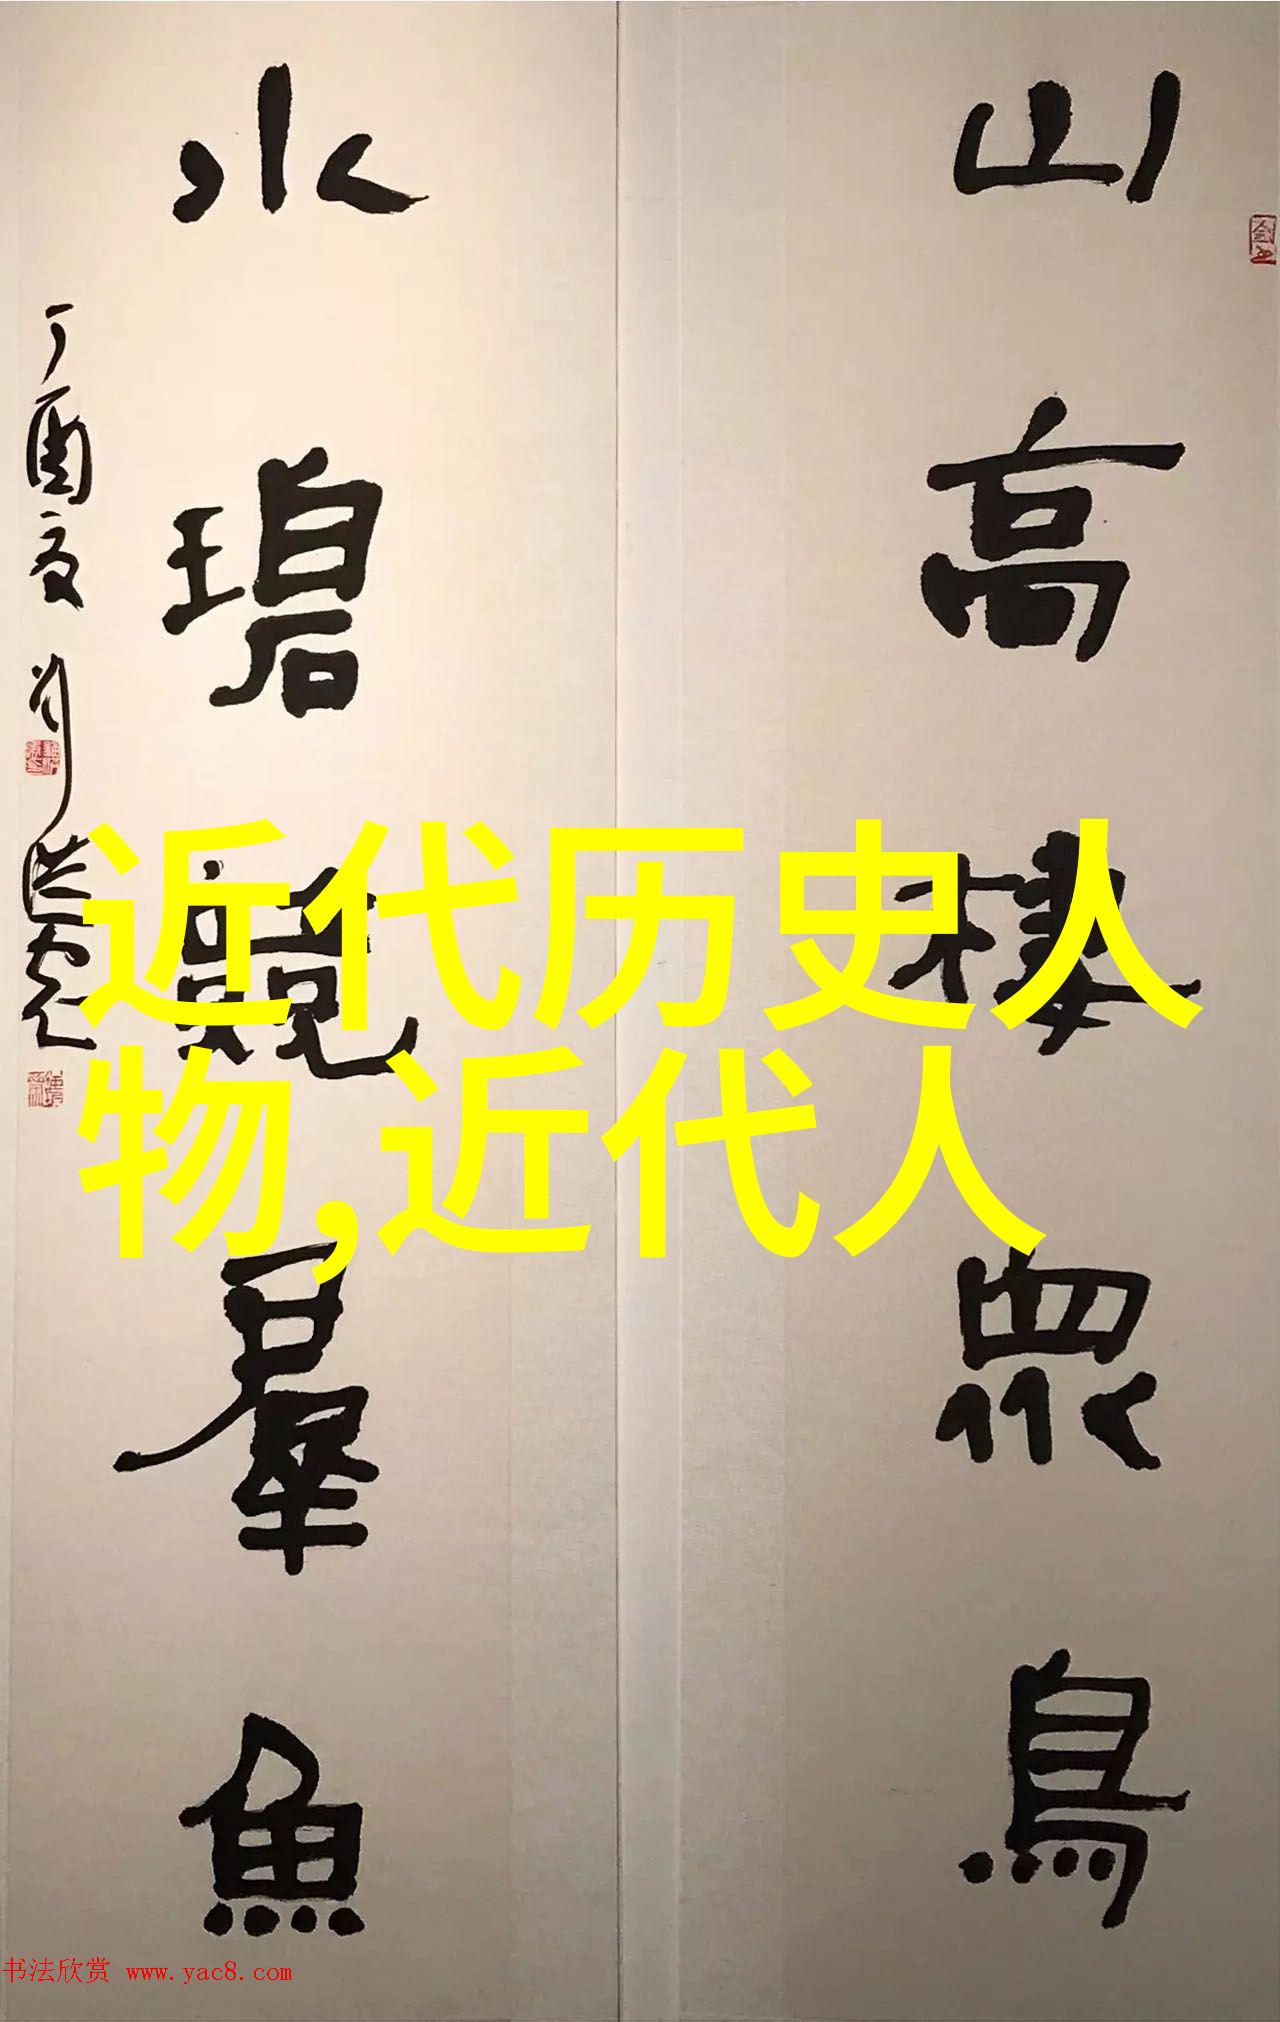 山高棲眾鳥
水碧競羣魚
丁酉夏
近代历史人
物,近代人
书法欣赏 www.yac8.com